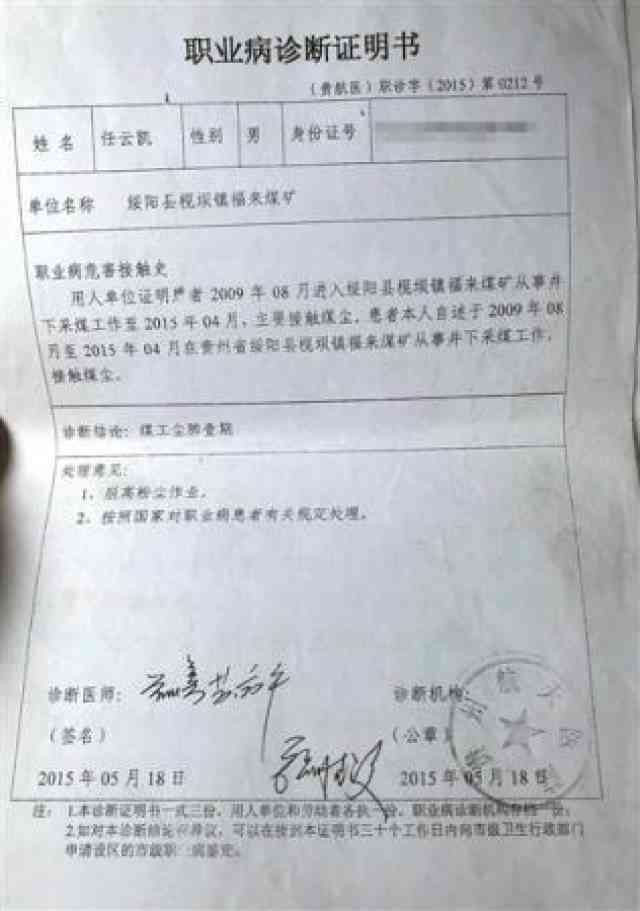 职业病诊断证明书
(贵航医)职诊字(2015)第0212号
姓名 任云凯 性别 男 身份证号
单位名称 绥阳县枧坝镇福来煤矿
职业病危害接触史
用人单位证明患者2009年08月进入绥阳县枧坝镇福来煤矿从事井
下采煤工作至2015年04月,主要接触煤尘,患者本人自述于2009年08
月至2015年04月在贵州省绥阳县枧坝镇福来煤矿从事井下采煤工作,
接触煤尘。
诊断结论:煤工尘肺壹期
处理意见:
1、脱离粉尘作业。
2、按照国家对职业病患者有关规定处理。
诊断医师: 诊断机构:
(签名) (公章)
2015年05月18日 2015年05月18日
注: 1.本诊断证明书一式三份,用人单位和劳动者各执一份,职业病诊断机构存档一份;
2.如对本诊断结论有异议,可以在接到本证明书三十个工作日内向市级卫生行政部门
申请设区的市级职业病鉴定。